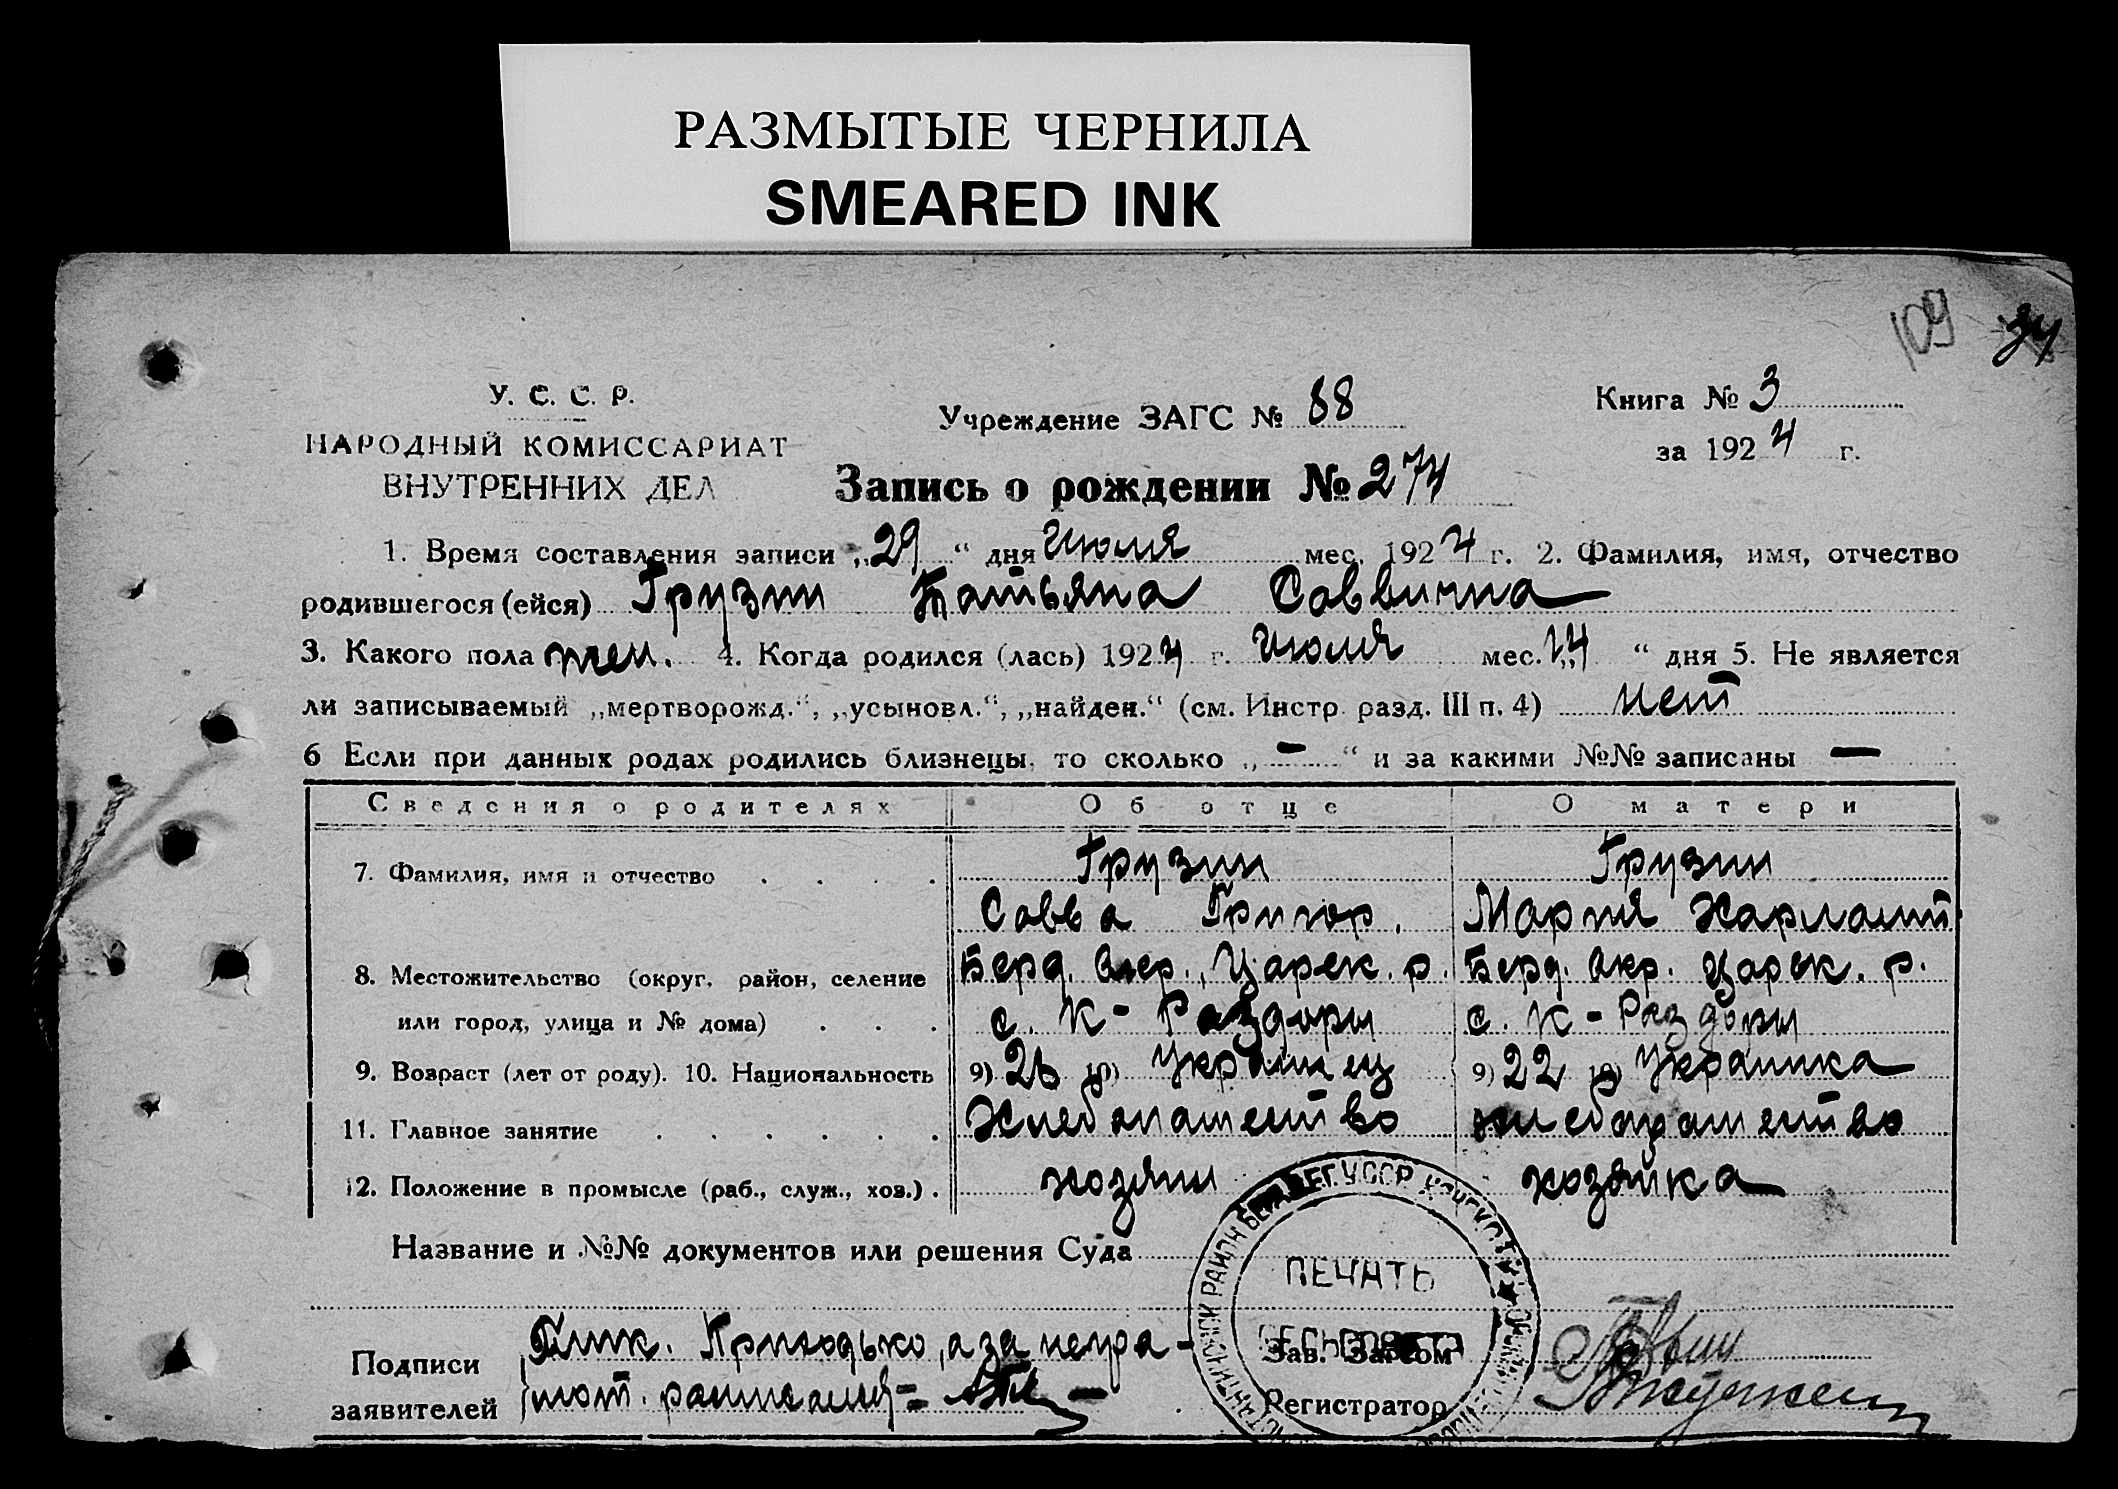 РАЗМЫТЫЕ ЧЕРНИЛА
SMEARED INK
109 34
У. С. С. Р.
НАРОДНЫЙ КОМИССАРИАТ
ВНУТРЕННИХ ДЕЛ
Учреждение ЗАГС № 88
Запись о рождении № 274
Книга № 3
за 1924 г.
1. Время составления записи „29“ дня Июля мес. 1924 г. 2. Фамилия, имя, отчество
родившегося (ейся) Грузин Татьяна Саввична
3. Какого пола жен. 4. Когда родился (лась) 1924 г. Июля мес. „14“ дня 5. Не является
ли записываемый „мертворожд.“, „усыновл.“, „найден.“ (см. Инстр. разд. III п. 4) Нет
6 Если при данных родах родились близнецы, то сколько „—“ и за какими №№ записаны —
Сведения о родителях Об отце О матери
7. Фамилия, имя и отчество Грузин Грузин
Савва Григор. Мария Харламп.
8. Местожительство (округ, район, селение Берд. Окр., Царек. р. Берд. Окр. Царек. р.
или город, улица и № дома) с. К-Раздоры с. К-Раздоры
9. Возраст (лет от роду). 10. Национальность 9) 26 10) Украинец 9) 22 10) Украинка
11. Главное занятие Хлебопашество хлебопашество
12. Положение в промысле (раб., служ., хоз.) хозяин хозяйка
Название и №№ документов или решения Суда
ПЕЧАТЬ
СЕЛЬСОВЕТА
Подписи Приходько, а за негра-
заявителей мот. расписался
Зав. Загсом
Регистратор